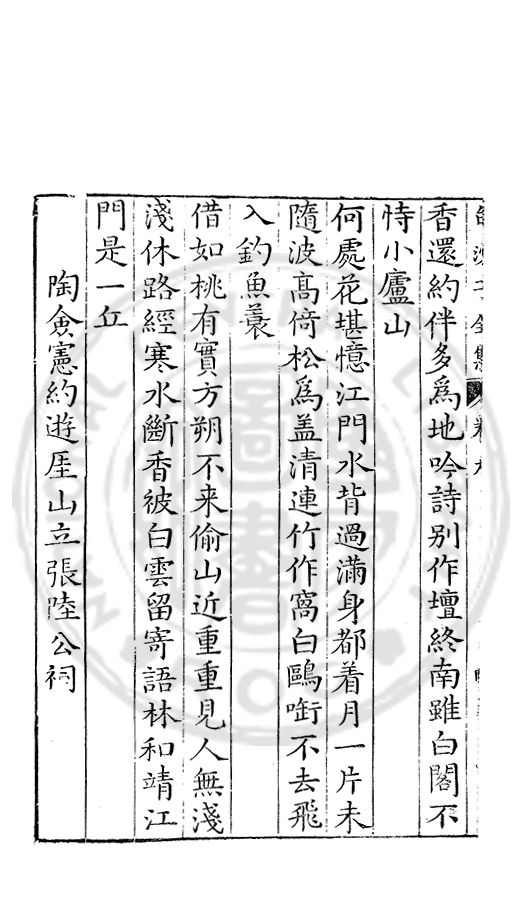 白沙子全集 卷九
香還約伴多為地吟詩别作壇終南雖白閣不
恃小廬山
何處花堪憶江門水背過滿身都着月一片未
隨波高倚松爲盖清連竹作窩白鷗啣不去飛
入釣魚蓑
借如桃有實方朔不来偷山近重重見人無淺
淺休路經寒水斷香被白雲留寄語林和靖江
門是一丘
陶僉憲約遊厓山立張陸公祠